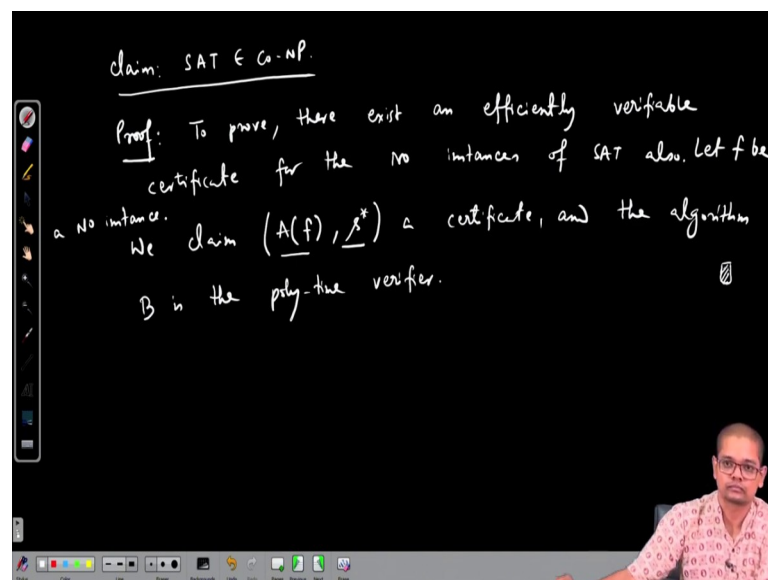 claim: SAT ∈ Co-NP.
Proof: To prove, there exist an efficiently verifiable
certificate for the No instances of SAT also. Let f be
a No instance.
We claim (A(f), s*) a certificate, and the algorithm
B is the poly-time verifier.